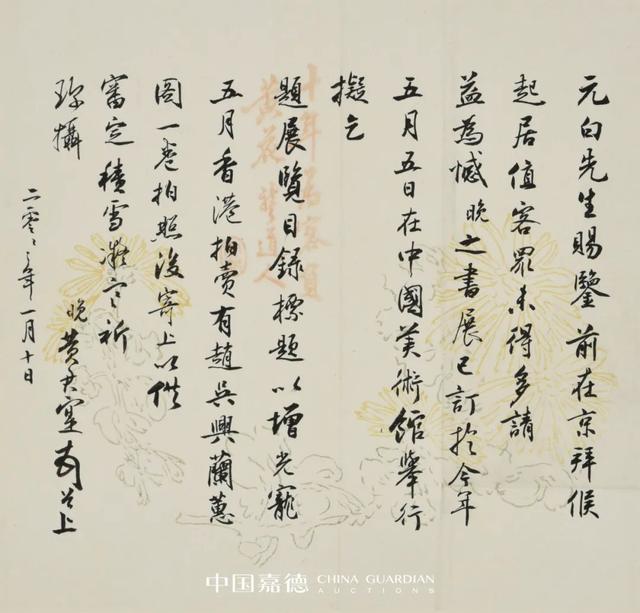 元白先生賜鑒前在京拜候
起居值客眾未得多請
益為憾晚之書展已訂於今年
五月五日在中國美術館舉行
擬乞
題展覽目錄標題以增光寵
五月香港拍賣有趙吳興蘭蕙
圖一卷拍照後寄上以供
審定積雪凝寒祈
珍攝
晚黃君寔
上
二零零三年一月十日
十年
黃花
道人
中国嘉德 CHINA GUARDIAN
AUCTIONS